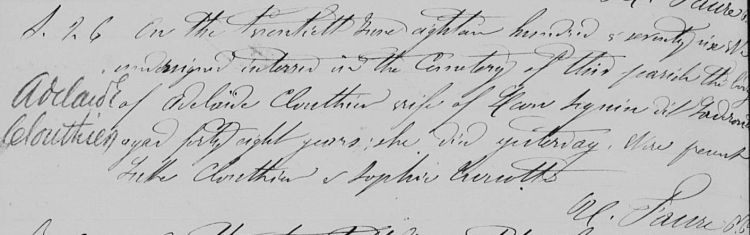 Faure
S. 26 On the twentieth June eighteen hundred & seventy six We
undersigned interred in the Cemetery of this parish the body
Adelaïde
of Adelaïde Clouthier wife of Leon Seguin dit Ladéroute
Clouthier
aged forty eight years; she died yesterday. Were present
Luke Clouthier & Sophie
U. Faure